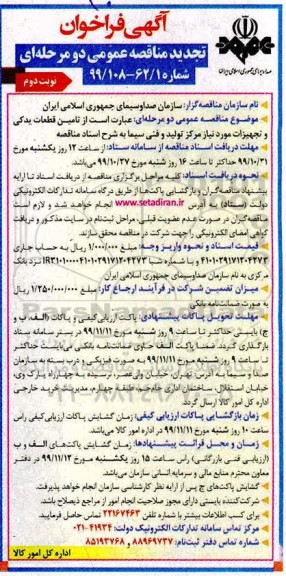 آگهی فراخوان
تجدید مناقصه عمومی دو مرحله‌ای
شماره ۹۹/۱۰۸-۶۲/۱
نوبت دوم
صداوسیمای جمهوری اسلامی ایران
نام سازمان مناقصه‌گزار: سازمان صداوسیمای جمهوری اسلامی ایران
موضوع مناقصه عمومی دو مرحله‌ای: عبارت است از تامین قطعات یدکی
و تجهیزات مورد نیاز مرکز تولید و فنی سیما به شرح اسناد مناقصه
مهلت دریافت اسناد مناقصه از سامانه ستاد: از ساعت ۱۲ روز یکشنبه مورخ
حداکثر تا ساعت ۱۶ روز شنبه مورخ ۹۹/۱۰/۲۷ می‌باشد.
نحوه دریافت اسناد: کلیه مراحل برگزاری مناقصه از دریافت اسناد تا ارایه
پیشنهاد مناقصه‌گران و بازگشایی پاکت‌ها از طریق درگاه سامانه تدارکات الکترونیکی
دولت (ستاد) به آدرس www.setadiran.ir انجام خواهد شد و لازم است
مناقصه‌گران در صورت عدم عضویت قبلی، مراحل ثبت‌نام در سایت مذکور و دریافت
گواهی امضای الکترونیکی را جهت شرکت در مناقصه محقق سازند.
قیمت اسناد و نحوه واریز وجه: مبلغ ۱/۰۰۰/۰۰۰ ریال به حساب جاری
نزد بانک
مرکزی به نام سازمان صداوسیمای جمهوری اسلامی ایران
میزان تضمین شرکت در فرآیند ارجاع کار: مبلغ ۱/۲۵۰/۰۰۰/۰۰۰ ریال
به صورت ضمانتنامه بانکی
مهلت تحویل پاکات پیشنهادی: پاکت ارزیابی کیفی و پاکات (الف، ب و
ج) بایستی حداکثر تا ساعت ۹ روز شنبه مورخ ۹۹/۱۱/۱۱ در بستر سامانه ستاد
بارگذاری گردد. ضمنا پاکت الف حاوی ضمانتنامه بانکی می‌بایست حداکثر
تا ساعت ۹ روز شنبه مورخ ۹۹/۱۱/۱۱ به صورت فیزیکی و درب بسته به سازمان
صدا و سیما به آدرس تهران، خیابان ولی‌عصر، نرسیده به چهارراه پارک وی،
خیابان استقلال، ساختمان اداری جام‌جم، طبقه چهارم، مدیریت خرید خارجی
اداره کل امور کالا ارسال گردد.
زمان بازگشایی پاکات ارزیابی کیفی: زمان گشایش پاکات ارزیابی کیفی راس
ساعت ۱۰ روز شنبه مورخ ۹۹/۱۱/۱۱ در اداره امور کالا می‌باشد.
زمان و محل قرائت پیشنهادها: زمان گشایش پاکت‌های الف و ب
(ارزیابی فنی بازرگانی) راس ساعت ۱۵ روز یکشنبه مورخ ۹۹/۱۱/۱۲ در دفتر
معاون محترم منابع مالی و سرمایه انسانی سازمان می‌باشد.
گشایش پاکت‌های ج پس از ارایه نظر کارشناسی سازمان انجام خواهد پذیرفت.
شرکت‌کننده بایستی دارای مجوز صلاحیت انجام امور از مراجع ذیصلاح باشد.
برای کسب اطلاعات بیشتر با شماره تلفن ۲۲۱۶۷۴۶۳ تماس حاصل فرمایید.
مرکز تماس سامانه تدارکات الکترونیک دولت: ۴۱۹۳۴-۰۲۱
شماره تماس دفتر ثبت‌نام: ۸۸۹۶۹۷۳۷ و ۸۵۱۹۳۷۶۸
اداره کل امور کالا